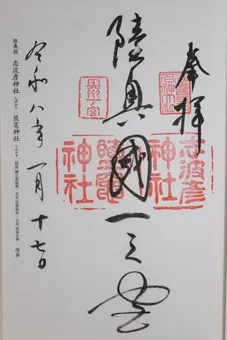 奉拝
陸奥國一之宮
志波彦神社
鹽竈神社
奥一宮
令和八年一月十七日
陸奥國 志波彦神社 鹽竈神社